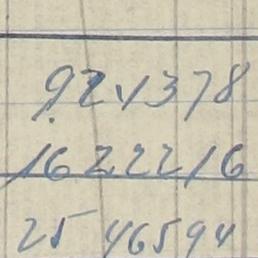 924378
1622216
2546594